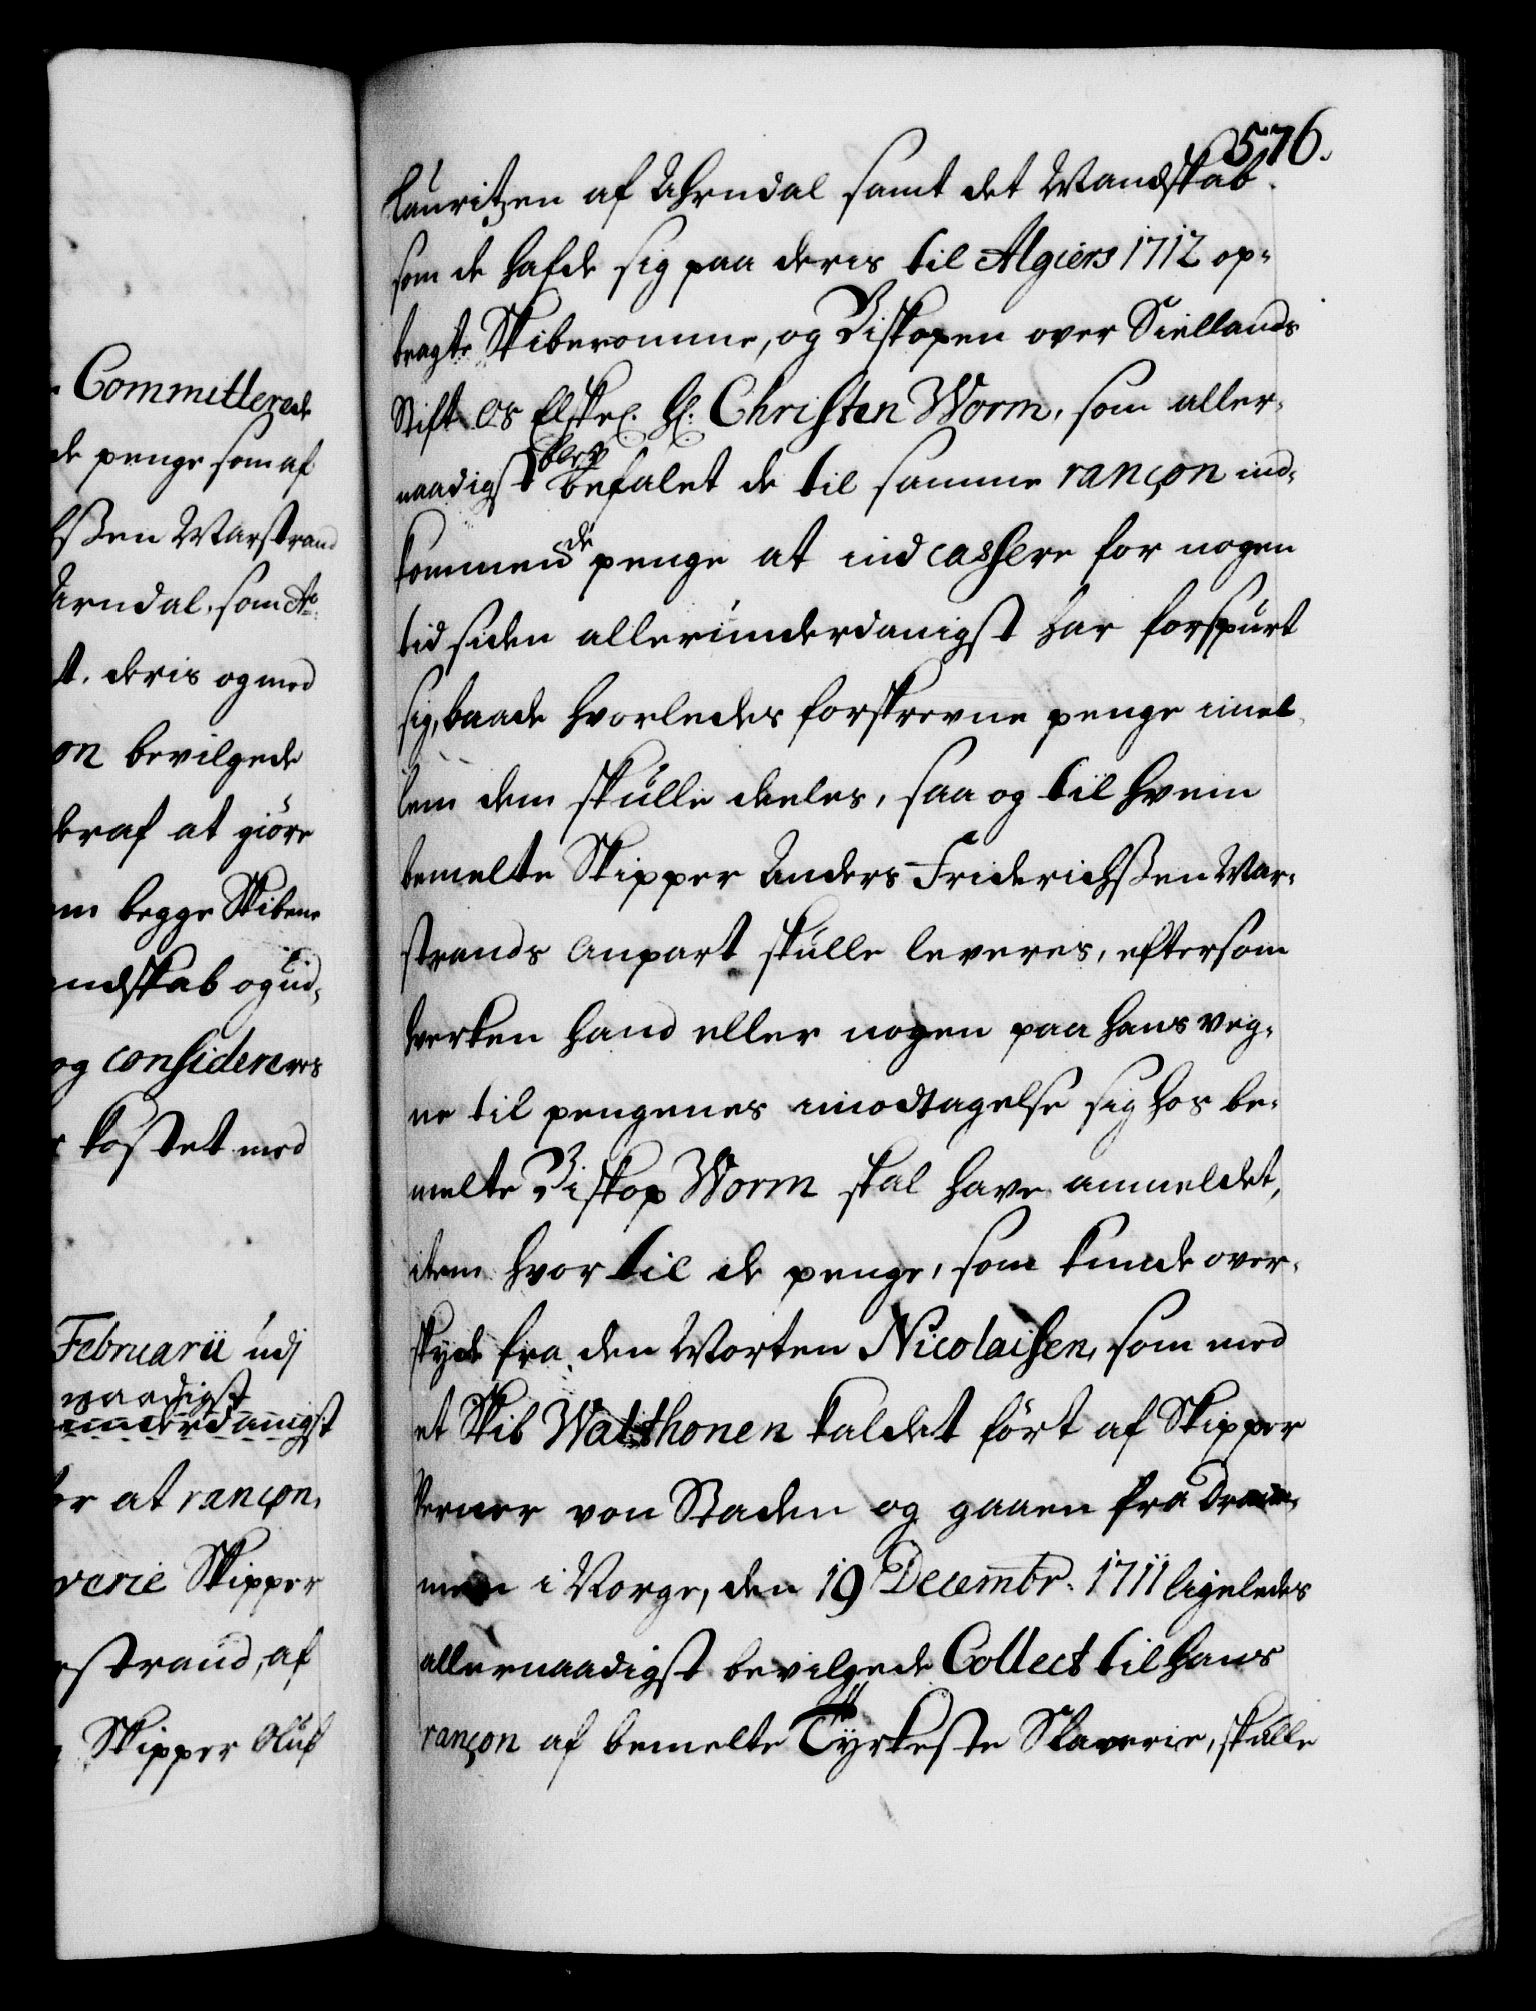 576.
Lauritzen af Ahrndal samt det Mandskab
som de hafde sig paa deris til Algiers 1712 op-
bragte Skiberomme, og Biskopen over Siellands
Stift Os Elskel. H: Christen Worm, som aller-
naadigst blev befalet de til samme rançon ind-
kommende penge at indcassere for nogen
tid siden allerunderdanigst har forspurt
sig, baade hvorledes forskrevne penge imel-
lem dem skulle deeles, saa og til hvem
bemelte Skipper Anders Friderichssen Mar-
strands Anpart skulle leveres, eftersom
hverken hand eller nogen paa hans veg-
ne til pengenes imodtagelse sig hos be-
melte Biskop Worm skal have anmeldet,
item hvor til de penge, som kunde over-
skyde fra den Morten Nicolaisen, som med
et Skib Walthonen kaldet ført af Skipper
Verner von Staden og gaaen fra Dram-
men i Norge, den 19 Decembr. 1711 ligeledes
allernaadigst bevilgede Collect til hans
rançon af bemelte Tyrkeske Slaverie, skulle
Committerede
de penge som af
hssen Marstrand
Arndal, som Ao
t. deris og med
on bevilgede
deraf at giöre
em begge Skibene
andskab og ud-
og considereres
kostet med
Februarii udj
naadigst
underdanigst
for at rançon-
verie Skipper
estrand, af
Skipper Oluf